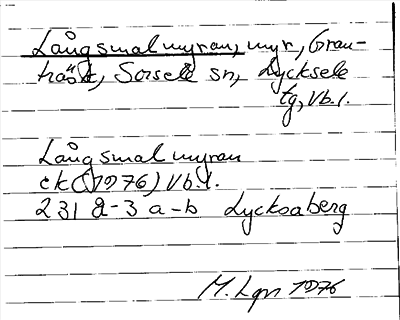 Långsmalmyran, myr, Gran-
träsk, Sorsele sn, Lycksele
tg, Vb.l.
Långsmalmyran
ek (1976) Vb.l.
231 2-3 a-b Lycksaberg
M. Lgn 1976